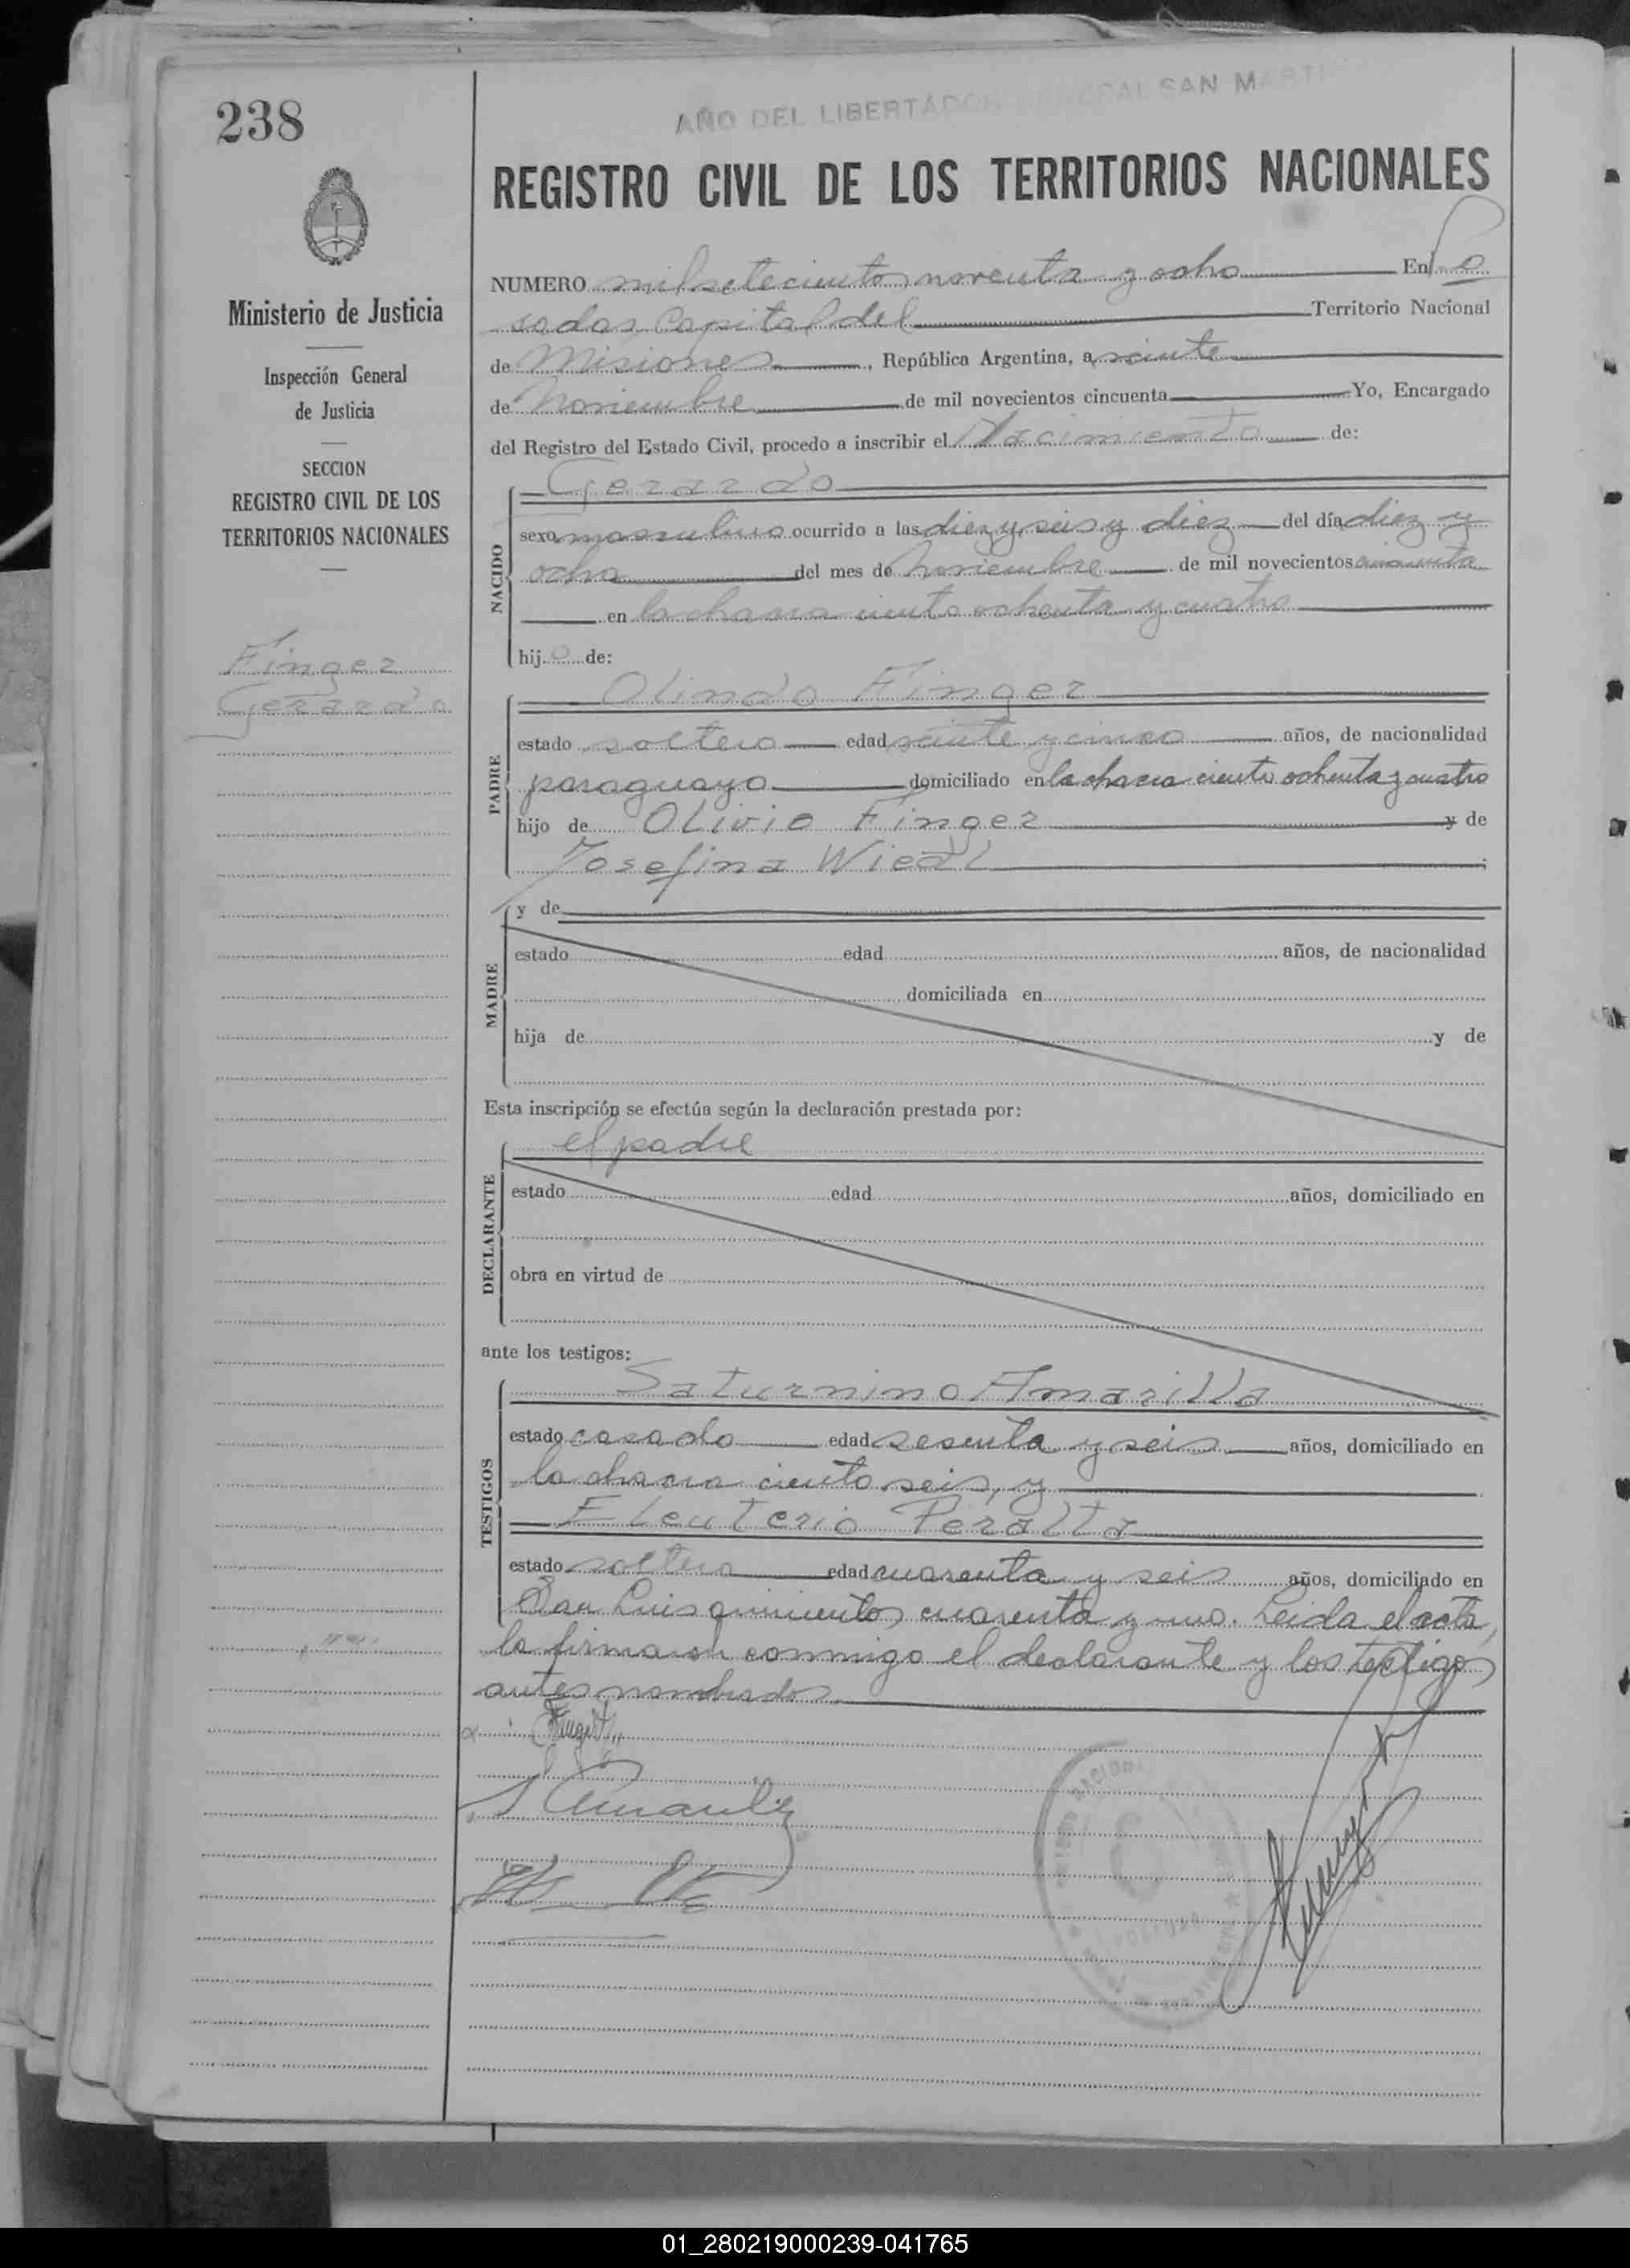 238
AÑO DEL LIBERTADOR GENERAL SAN MARTI
REGISTRO CIVIL DE LOS TERRITORIOS NACIONALES
Ministerio de Justicia
Inspección General
de Justicia
SECCION
REGISTRO CIVIL DE LOS
TERRITORIOS NACIONALES
Finger
Gerardo
NUMERO mil setecientos noventa y ocho En Po
sadas Capital del Territorio Nacional
de Misiones, República Argentina, a veinte
de Noviembre de mil novecientos cincuenta Yo, Encargado
del Registro del Estado Civil, procedo a inscribir el Nacimiento de:
NACIDO
Gerardo
sexo masculino ocurrido a las diez y seis y diez del día diez y
ocho del mes de Noviembre de mil novecientos cincuenta
en la chacra ciento ochenta y cuatro
hijo de:
PADRE
Olindo Finger
estado soltero edad veinte y cinco años, de nacionalidad
paraguayo domiciliado en la chacra ciento ochenta y cuatro
hijo de Olivio Finger y de
Josefina Wiedl
MADRE
y de
estado edad años, de nacionalidad
domiciliada en
hija de y de
Esta inscripción se efectúa según la declaración prestada por:
DECLARANTE
el padre
estado edad años, domiciliado en
obra en virtud de
ante los testigos:
TESTIGOS
Saturnino Amarilla
estado casado edad sesenta y seis años, domiciliado en
la chacra ciento seis, y
Eleuterio Peralta
estado soltero edad cuarenta y seis años, domiciliado en
San Luis quinientos cuarenta y uno. Leida el acta,
la firmaron conmigo el declarante y los testigos
antes nombrados
01_280219000239-041765